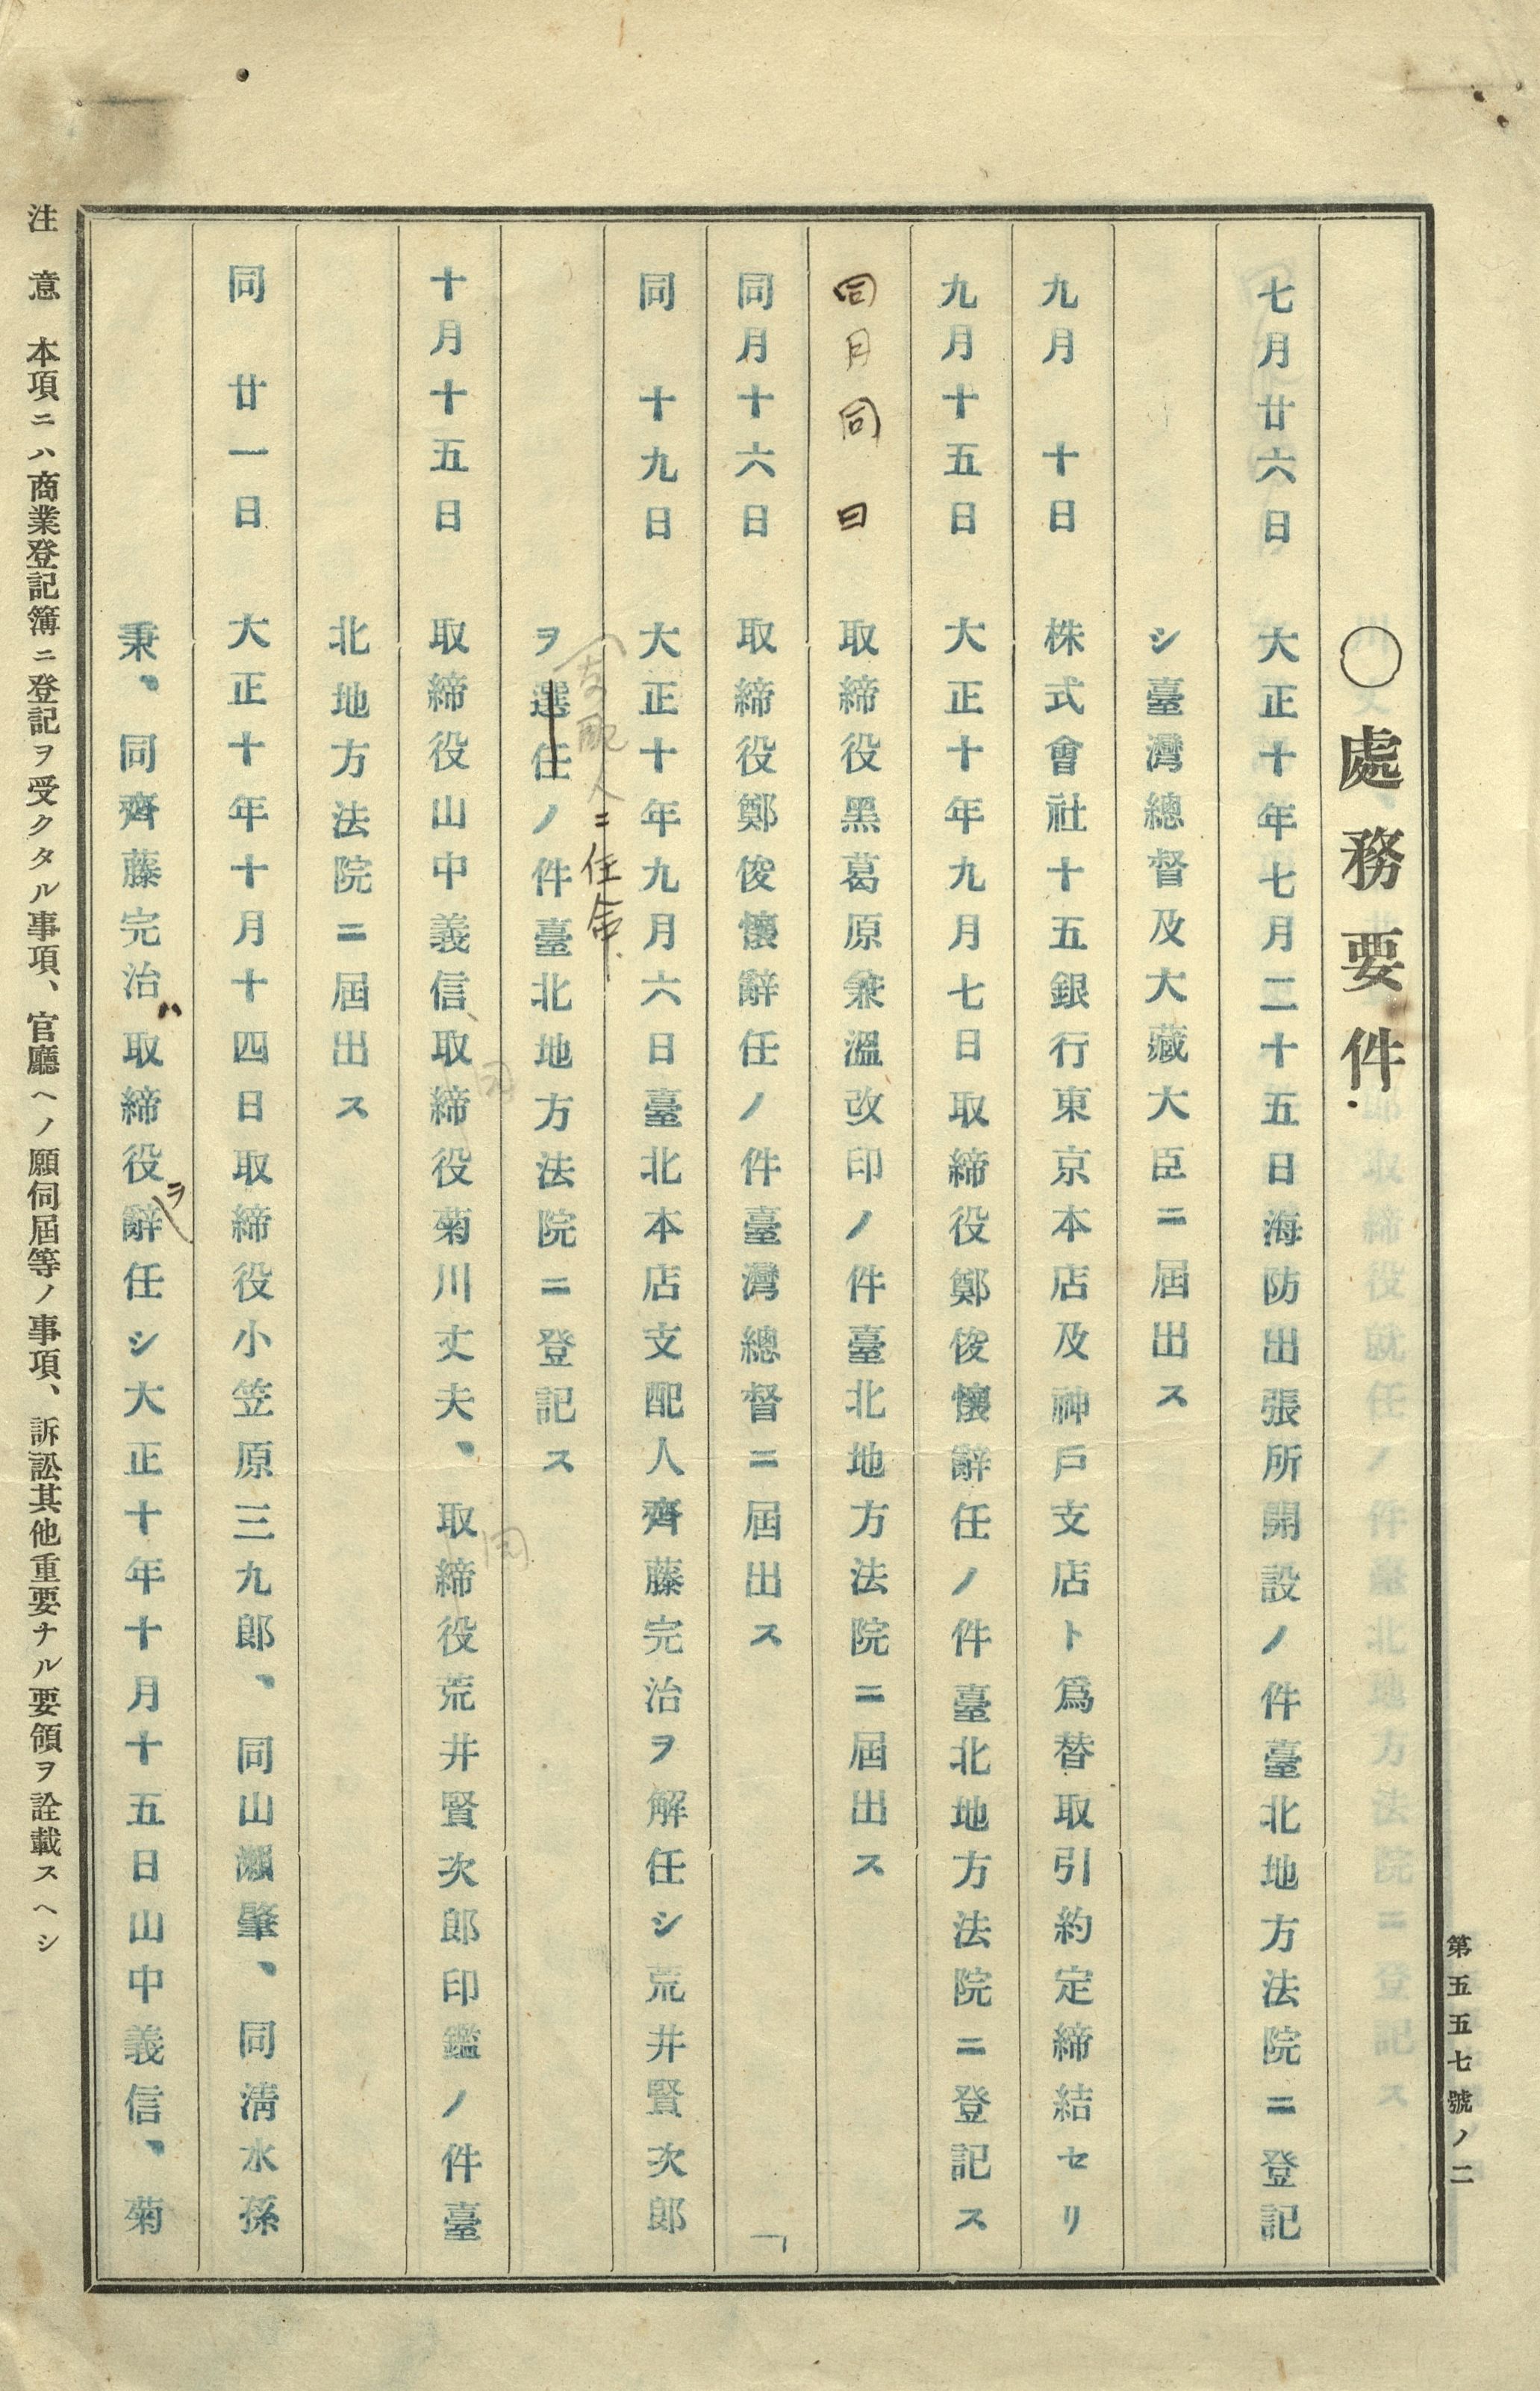 第五五七號ノ二
○處務要件
七月廿六日 大正十年七月二十五日海防出張所開設ノ件臺北地方法院ニ登記
シ臺灣總督及大藏大臣ニ屆出ス
九月 十日 株式會社十五銀行東京本店及神戶支店ト爲替取引約定締結セリ
九月十五日 大正十年九月七日取締役鄭俊懷辭任ノ件臺北地方法院ニ登記ス
同月同 日 取締役黑葛原兼溫改印ノ件臺北地方法院ニ屆出ス
同月十六日 取締役鄭俊懷辭任ノ件臺灣總督ニ屆出ス
同 十九日 大正十年九月六日臺北本店支配人齊藤完治ヲ解任シ荒井賢次郎
支配人ニ任命
ヲ選任ノ件臺北地方法院ニ登記ス
同
同
十月十五日 取締役山中義信取締役菊川丈夫、取締役荒井賢次郎印鑑ノ件臺
北地方法院ニ屆出ス
同 廿一日 大正十年十月十四日取締役小笠原三九郎、同山瀨肇、同淸水孫
秉、同齊藤完治ハ取締役ヲ辭任シ大正十年十月十五日山中義信、菊
注意 本項ニハ商業登記簿ニ登記ヲ受クタル事項、官廳ヘノ願伺屆等ノ事項、訴訟其他重要ナル要領ヲ詮載スヘシ